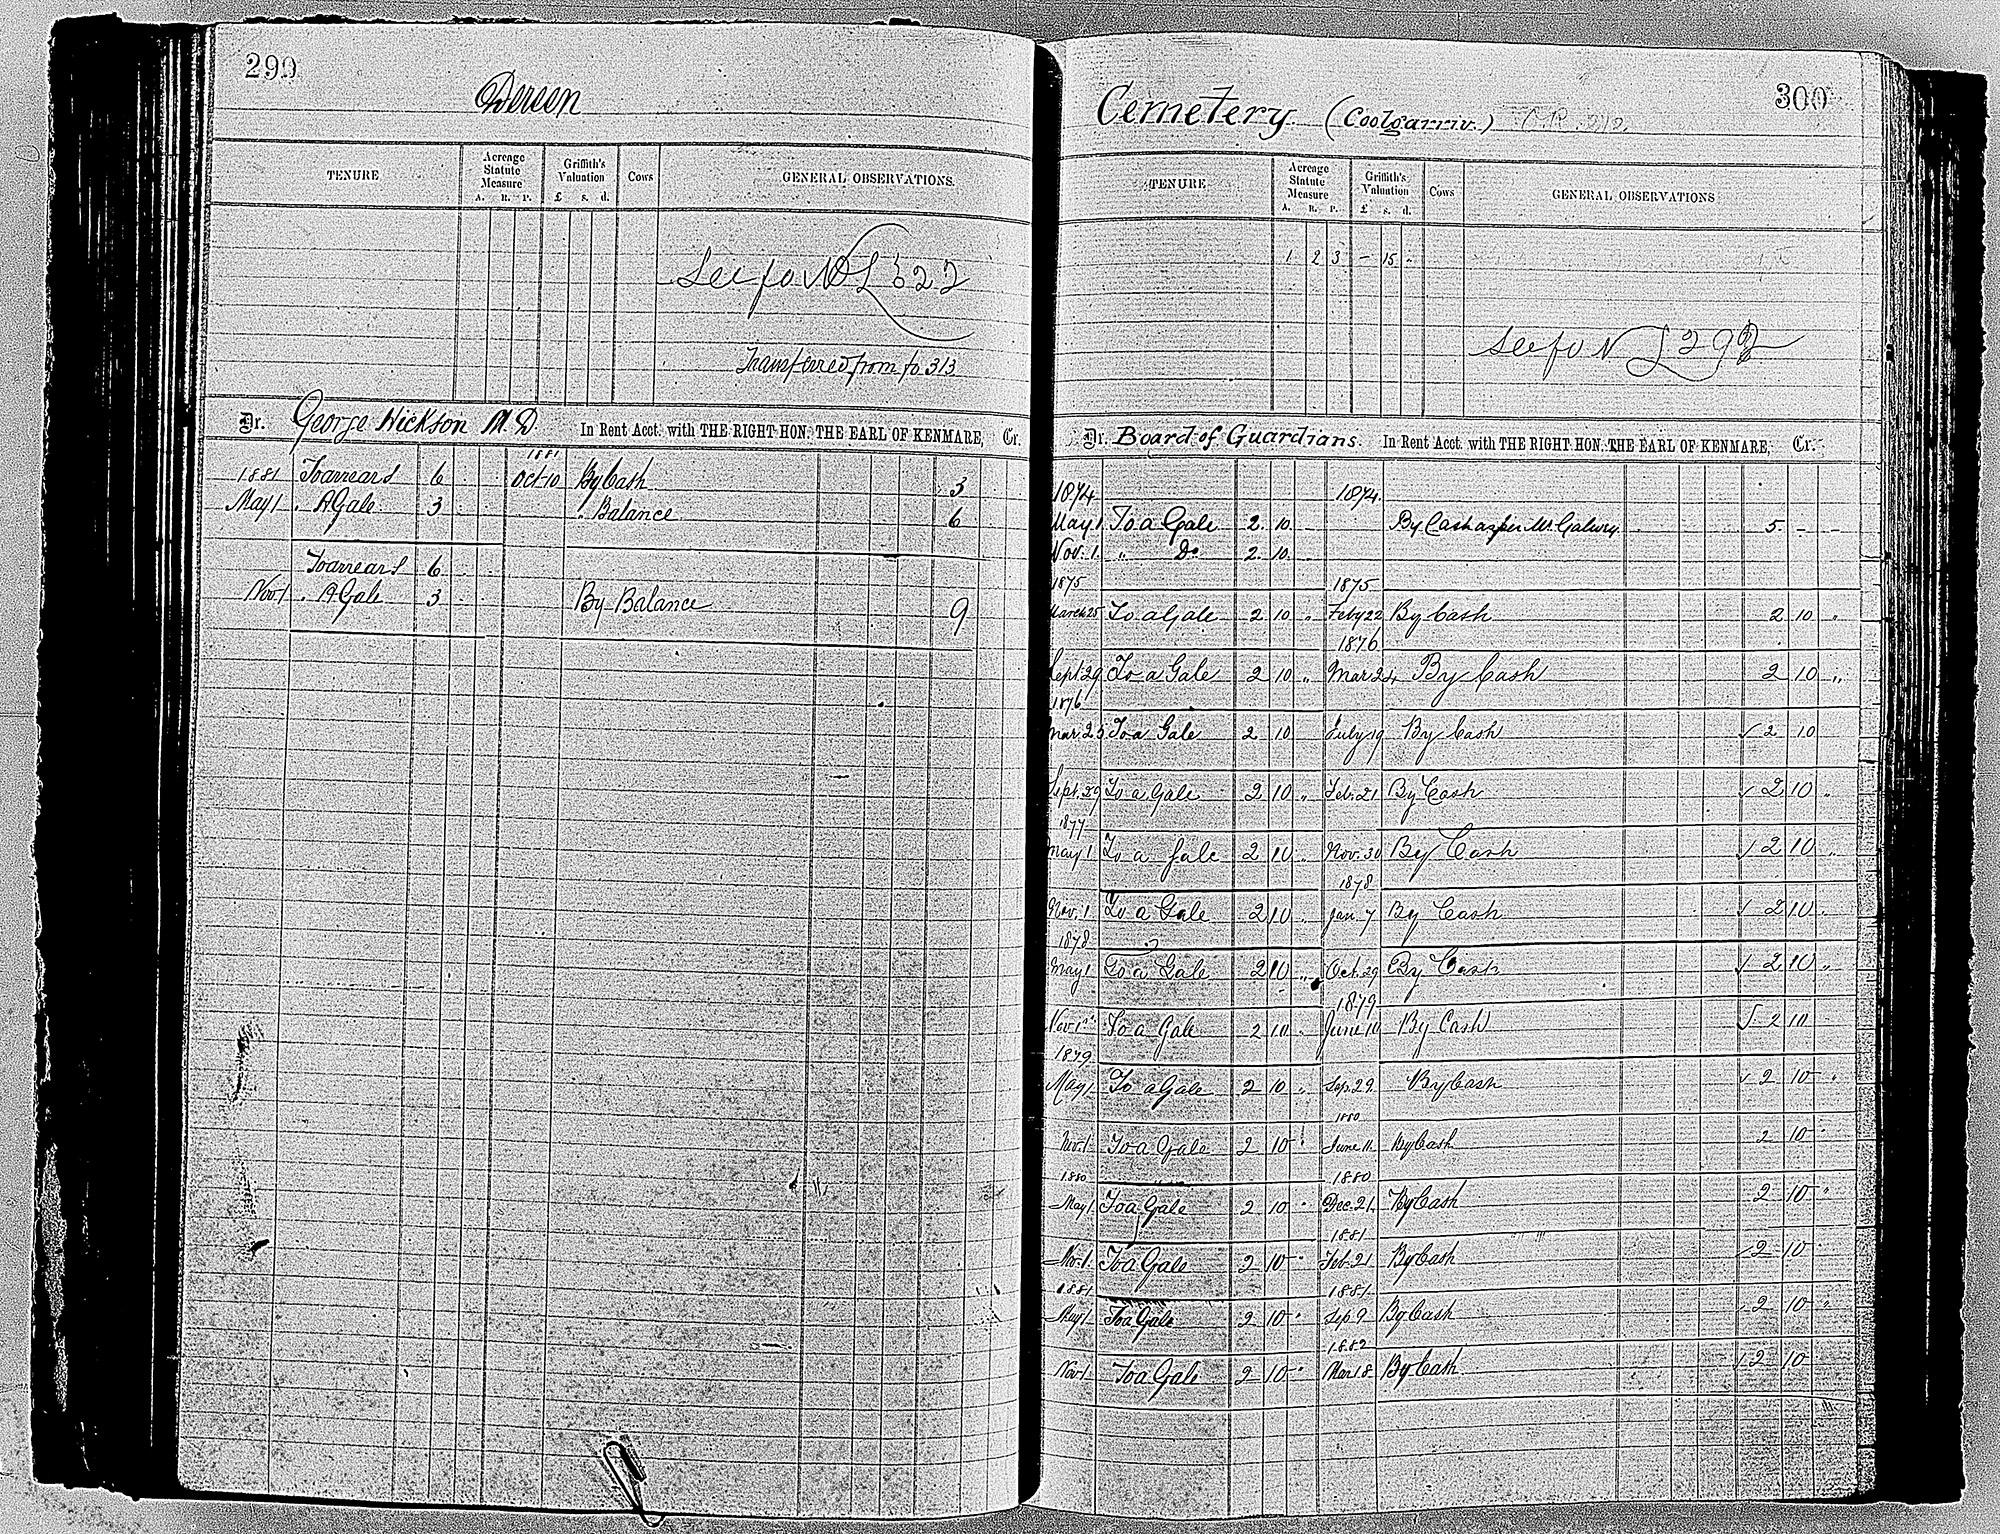 299
Dereen
TENURE Acreage Statute Measure A. R. P. Griffith's Valuation £ s. d. Cows GENERAL OBSERVATIONS.
See fo NL 322
Transferred from fo 313
Dr. George Hickson M.D. In Rent Acct. with THE RIGHT HON. THE EARL OF KENMARE, Cr.
1881
1881 To arrears 6 Oct 10 By Cash 3
May 1 " A Gale 3 " Balance 6
To arrears 6
Nov 1 " A Gale 3 By Balance 9
300
Cemetery (Coolgarriv.)
TENURE Acreage Statute Measure A. R. P. Griffith's Valuation £ s. d. Cows GENERAL OBSERVATIONS
1 2 3 – 15 "
See fo NL 292
Dr. Board of Guardians. In Rent Acct. with THE RIGHT HON. THE EARL OF KENMARE, Cr.
1874 1874
May 1 To a Gale 2 10 By Cash as per Mr. Galwey 5 – –
Nov. 1 " Do 2 10
1875 1875
March 25 To a Gale 2 10 " Feby 22 By Cash 2 10 "
1876
Sept 29 To a Gale 2 10 " Mar 24 By Cash 2 10 "
1876
Mar. 25 To a Gale 2 10 July 19 By Cash ✓ 2 10
Sept. 29 To a Gale 2 10 " Feb. 21 By Cash ✓ 2 10 "
1877
May 1 To a Gale 2 10 " Nov. 30 By Cash ✓ 2 10 "
1878
Nov. 1 To a Gale 2 10 " Jan. 7 By Cash ✓ 2 10 "
1878
May 1 To a Gale 2 10 " Oct. 29 By Cash ✓ 2 10 "
1879
Nov 1st To a Gale 2 10 " June 10 By Cash ✓ 2 10
1879
May 1 To a Gale 2 10 " Sep. 29 By Cash ✓ 2 10 "
1880
Nov. 1 To a Gale 2 10 " June 11 By Cash 2 10 "
1880 1880
May 1 To a Gale 2 10 " Dec. 21 By Cash 2 10 "
1881
Nov. 1 To a Gale 2 10 " Feb. 21 By Cash ✓ 2 10 "
1881 1881
May 1 To a Gale 2 10 " Sep 9 By Cash ✓ 2 10 "
1882
Nov 1 To a Gale 2 10 " Mar 18 By Cash ✓ 2 10